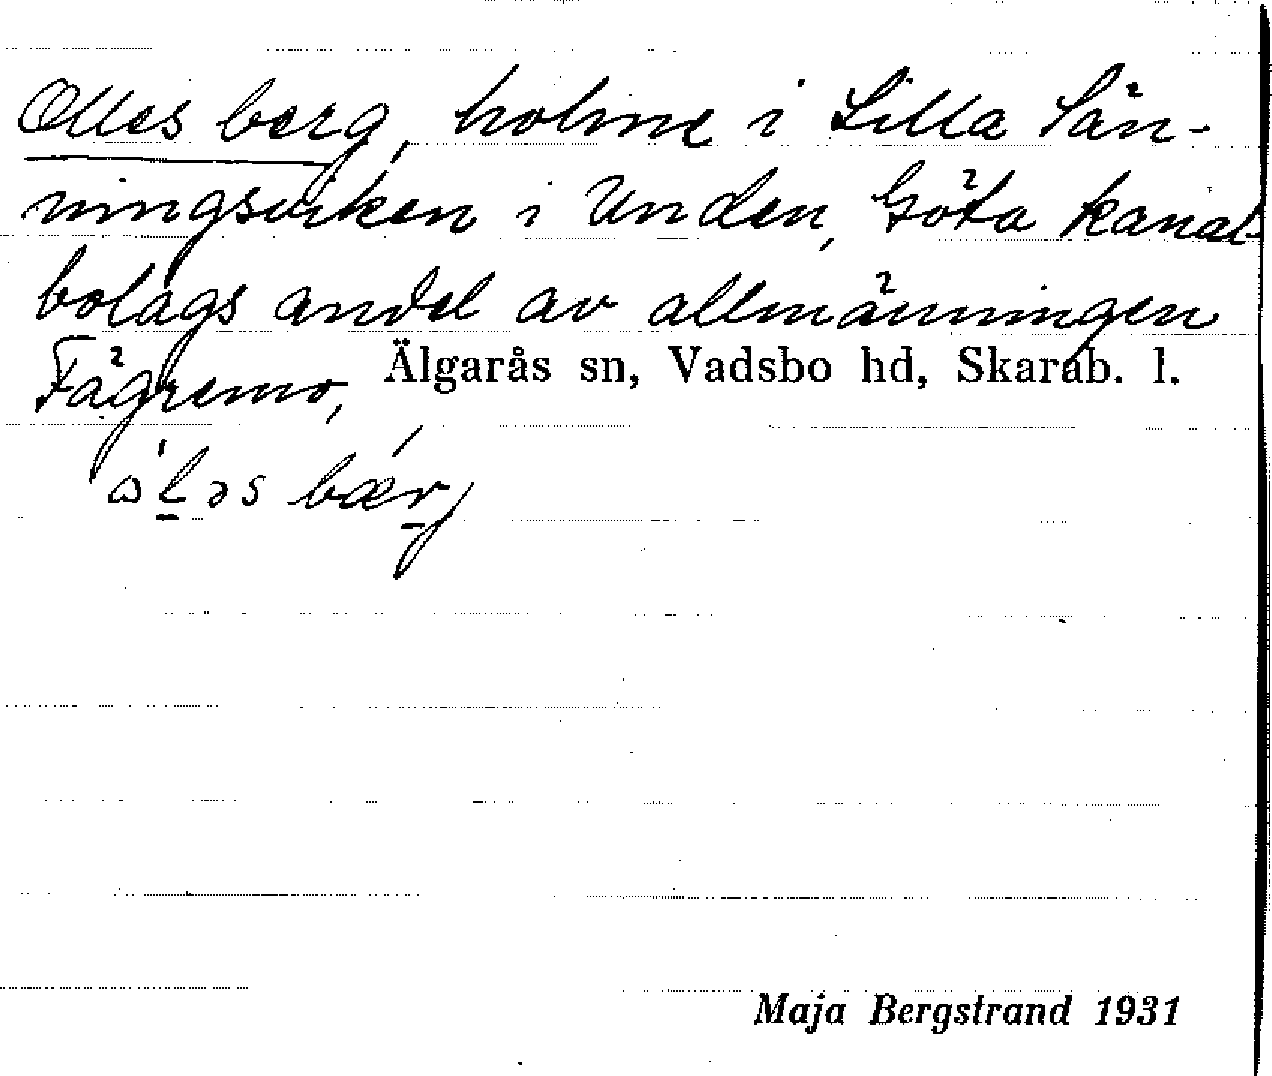 Olles berg, holme i Lilla Sän-
ningsviken i Unden, Göta kanal-
bolags andel av allmänningen
Fägremo, Älgarås sn, Vadsbo hd, Skarab. l.
bærj
Maja Bergstrand 1931